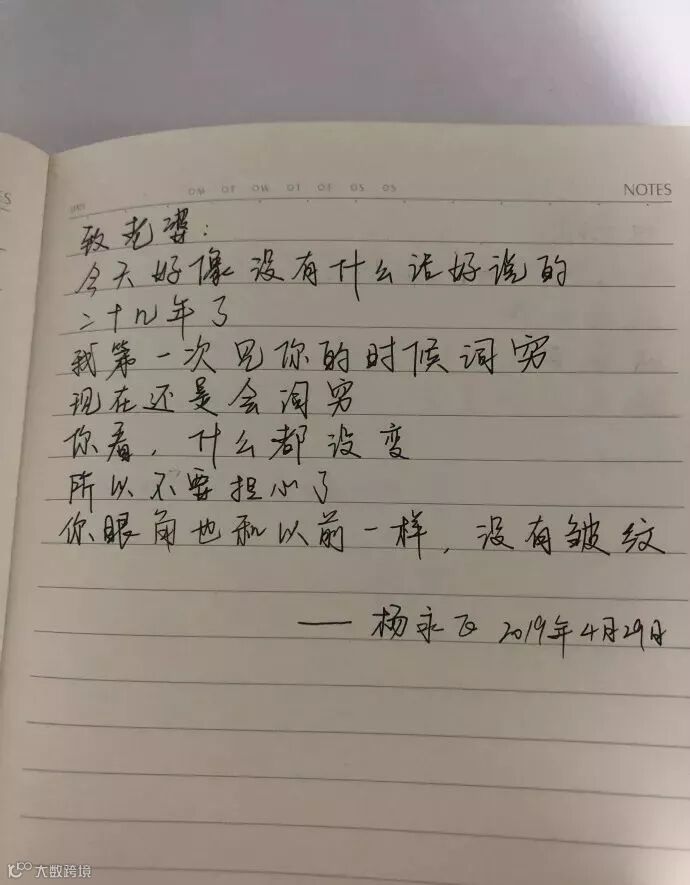 NOTES
致老婆:
今天好像没有什么话好说的
二十九年了
我第一次见你的时候词穷
现在还是会词穷
你看,什么都没变
所以不要担心了
你眼角也和以前一样,没有皱纹
—— 杨永正 2019年4月29日
大数跨境